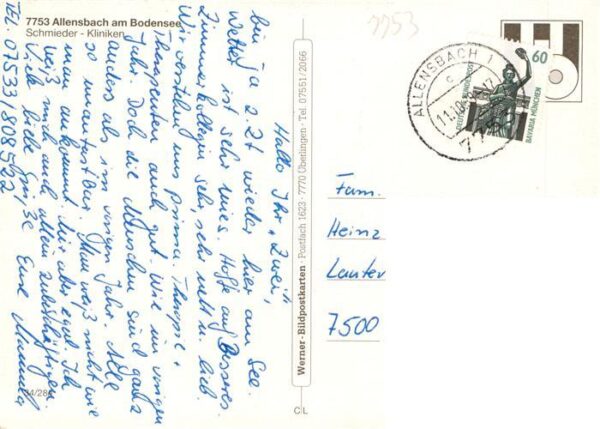 7753 Allensbach am Bodensee
Schmieder - Kliniken
7753
Hallo Ihr „Zwei",
bin ja z. Zt wieder hier am See.
Wetter ist sehr mies. Hoffe auf Besseres
Zimmerkollegin sehr, sehr nett u. lieb
Wir verstehen uns prima. Therapie +
Therapeuten auch gut wie im vorigen
Jahr. Doch die Menschen sind ganz
anders als im vorigen Jahr. Alle
so unantastbar. Man weiß nicht wie
man ankommt. Mir aber egal. Ich
weiß mich auch allein zu beschäftigen.
Viele liebe Grüße Eure
TEL. 07533/808592
Werner-Bildpostkarten · Postfach 1623 · 7770 Überlingen · Tel. 07551/2066
C L
ALLENSBACH 1
7753
60
BAVARIA MÜNCHEN
DEUTSCHE BUNDESPOST
Fam.
Heinz
Lauter
7500